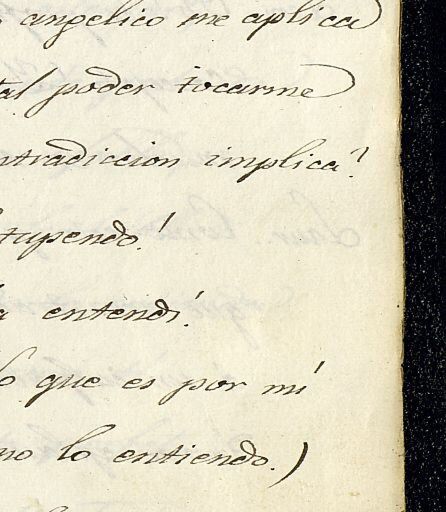 angelico me aplica
tal poder tocarme
ntradiccion implica?
tupendo!
entendi!
que es por mí
no lo entiendo.)